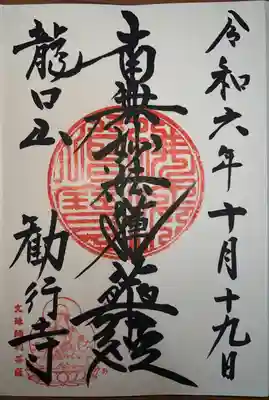 令和六年十月十九日
南無妙法蓮華経
龍口山
勧行寺